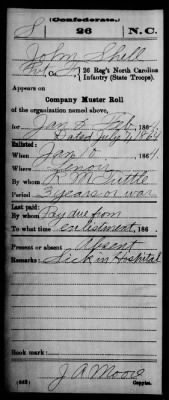 (Confederate.)
S 26 N.C.
John Shell
Pvt, Co. F, 26 Reg't North Carolina
Infantry (State Troops).
Appears on
Company Muster Roll
of the organization named above,
for Jan & Feb, 186
Dated July 7, 1864
Enlisted:
When Jan 10, 186
Where Lenoir
By whom Tuttle
Period 3 years or war
Last paid:
By whom Pay due from
To what time enlistment, 186 .
Present or absent Absent
Remarks: Sick in Hospital
Book mark:
J A Moore
(642) Copyist.